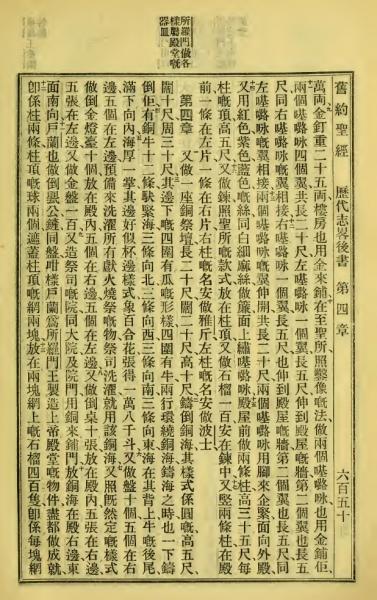 所羅門做各
樣屬殿堂嘅
器皿
舊約聖經 歷代志畧後書 第四章 六百五十
萬両金釘重二十五両樓房也用金來鋪在至聖所照鑿像嘅法做兩個基嚕咏也用金鋪佢
兩個基嚕咏嘅翼共長二十尺左基嚕咏一個翼長五尺伸到殿屋嘅牆第二個翼也長五
尺同右基嚕咏嘅翼相接右基嚕咏一個翼長五尺也伸到殿屋嘅牆第二個翼也長五尺同
左基嚕咏嘅翼相接兩個基嚕咏嘅翼伸開共長二十尺兩個基嚕咏用腳來企緊面向外殿
又用紅色紫色藍色嘅絲同白細麻絲做簾面上繡基嚕咏殿屋前做兩條柱高三十五尺每
柱嘅頂高五尺又做鍊照聖所嘅款式放在柱頂又做石榴一百安在鍊中又竪兩條柱在殿
前一條在左片一條在右片右柱嘅名安做雅斤左柱嘅名安做波士
第四章 又做一座銅祭壇長二十尺闊二十尺高十尺鑄倒銅海其樣式係圓嘅高五尺
闊十尺周三十尺其邊下嘅四圍有瓜嘅形樣四圍有牛兩行環繞銅海鑄海之時也一下鑄
倒佢有銅牛十二條馱緊海三條向北三條向西三條向南三條向東海在其背上牛嘅後尾
滿下向內海厚一掌其邊好似杯邊樣式象百合花張得一萬八千斗又做盤十個五個在右
邊五個在左邊預備來洗濯所有獻火燒祭嘅物祭司洗濯就用該銅海又照既然定嘅樣式
做倒金燈臺十個放在殿內五個在右邊五個在左邊又做倒桌十張放在殿內五張在右邊
五張在左邊又做金盤一百又造祭司嘅院同大院及院門用銅來鋪門放銅海在殿右邊東
面南向戶蘭也做倒公鏟同盤咁樣戶蘭爲所羅門王製造上帝殿堂嘅物件盡都做成就
卽係柱兩條柱頂嘅球兩個遮蓋柱頂嘅網兩塊放在兩塊網上嘅石榴四百隻卽係每塊網